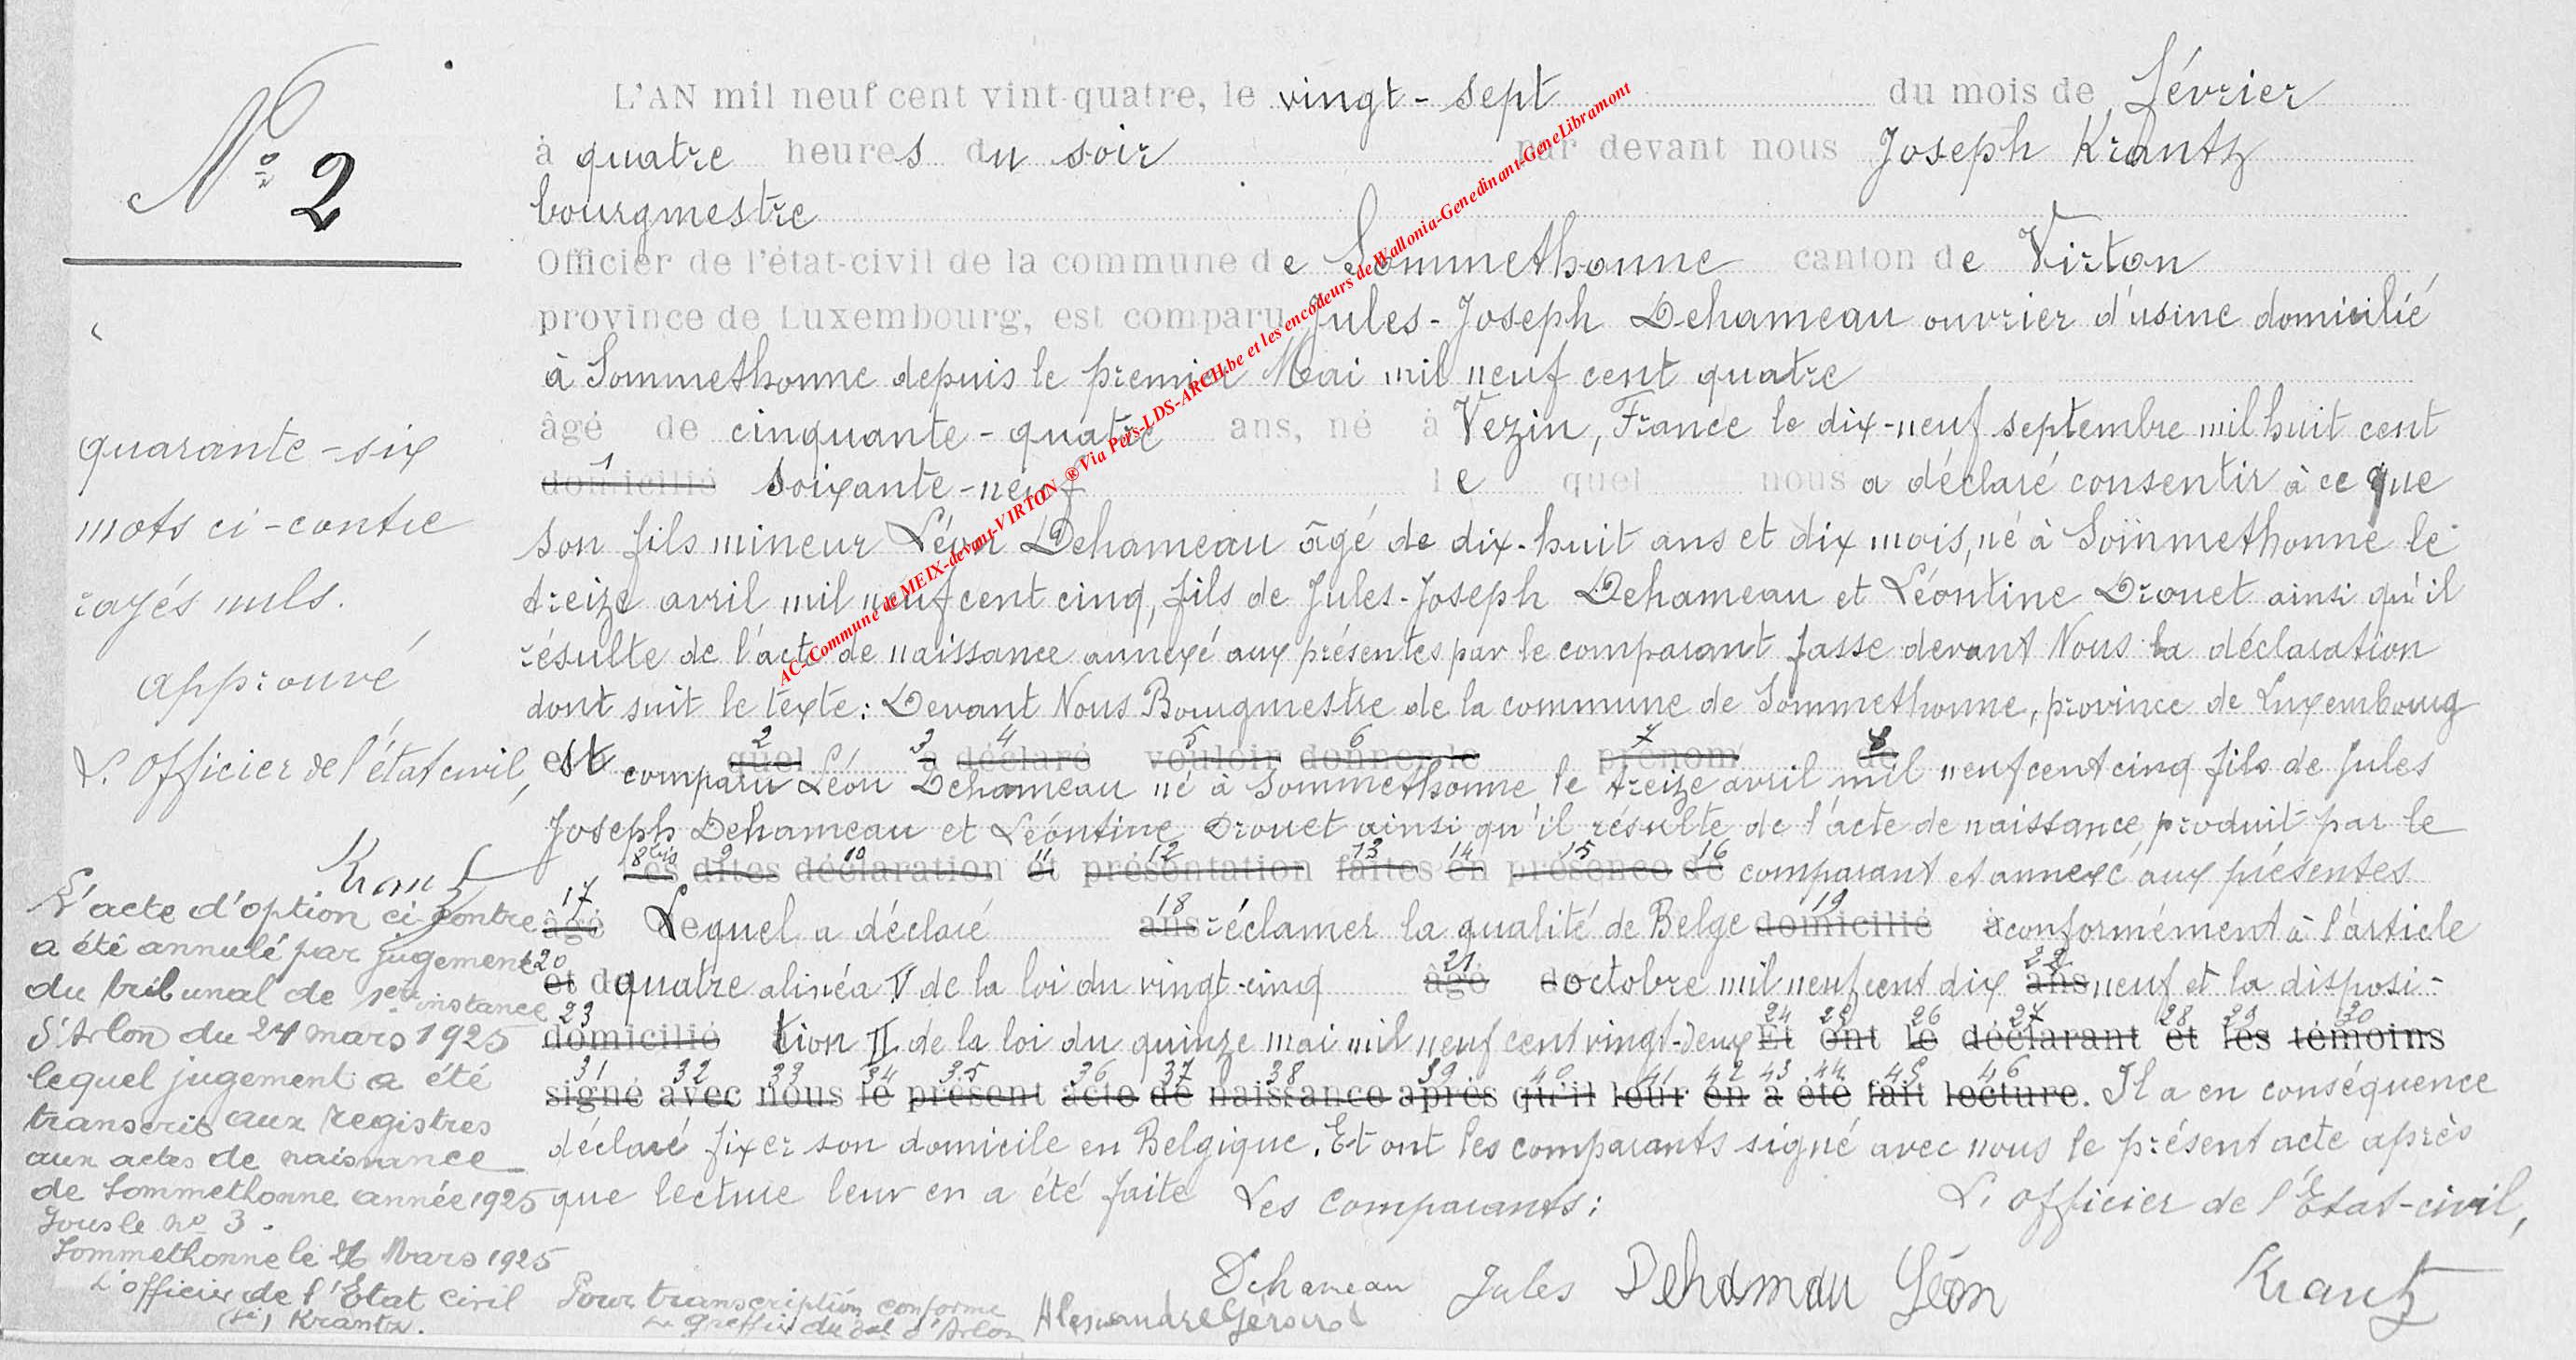 N° 2
L'AN mil neuf cent vint-quatre, le vingt-sept du mois de Février
à quatre heures du soir par devant nous Joseph Krantz
bourgmestre
Officier de l'état-civil de la commune de Sommethonne canton de Virton
province de Luxembourg, est comparu Jules-Joseph Dehameau ouvrier d'usine domicilié
à Sommethonne depuis le premier Mai mil neuf cent quatre
âgé de cinquante-quatre ans, né à Vezin, France le dix-neuf septembre mil huit cent
1
domicilié soixante-neuf le quel nous a déclaré consentir à ce que
son fils mineur Léon Dehameau âgé de dix-huit ans et dix mois, né à Sommethonne le
treize avril mil neuf cent cinq, fils de Jules-Joseph Dehameau et Léontine Drouet ainsi qu'il
résulte de l'acte de naissance annexé aux présentes par le comparant fasse devant Nous la déclaration
dont suit le texte: Devant Nous Bourgmestre de la commune de Sommethonne, province de Luxembourg
2 3 4 5 6 7 8
est quel a déclaré vouloir donner le prénom de
comparu Léon Dehameau né à Sommethonne le treize avril mil neuf cent cinq fils de Jules
Joseph Dehameau et Léontine Drouet ainsi qu'il résulte de l'acte de naissance produit par le
8bis 9 10 11 12 13 14 15 16
Les dites déclaration et présentation faites en présence de comparant et annexé aux présentes
17 18 19
âgé Lequel a déclaré ans réclamer la qualité de Belge domicilié à conformément à l'article
20 21 22
et d quatre alinéa V de la loi du vingt-cinq âgé d octobre mil neuf cent dix ans neuf et la disposi-
23 24 25 26 27 28 29 30
domicilié tion II de la loi du quinze mai mil neuf cent vingt-deux Et ont le déclarant et les témoins
31 32 33 34 35 36 37 38 39 40 41 42 43 44 45 46
signé avec nous le présent acte de naissance après qu'il leur en a été fait lecture. Il a en conséquence
déclaré fixer son domicile en Belgique. Et ont les comparants signé avec nous le présent acte après
que lecture leur en a été faite Les comparants: L'officier de l'État-civil,
Dehameau Jules Dehamau Léon Krantz
quarante-six
mots ci-contre
rayés nuls.
approuvé
L'Officier de l'état civil,
Krantz
L'acte d'option ci contre
a été annulé par jugement
du tribunal de 1ere instance
d'Arlon du 24 mars 1925
lequel jugement a été
transcrit aux registres
aux actes de naissance
de Sommethonne année 1925
sous le no 3.
Sommethonne le 26 Mars 1925
L'officier de l'Etat civil
(sé) Krantz.
Pour transcription conforme
Le greffier du d'Arlon
AC-Commune de MEIX-devant-VIRTON ® Via Pers-LDS-ARCH.be et les encodeurs de Wallonia-Genedinant-GeneLibramont